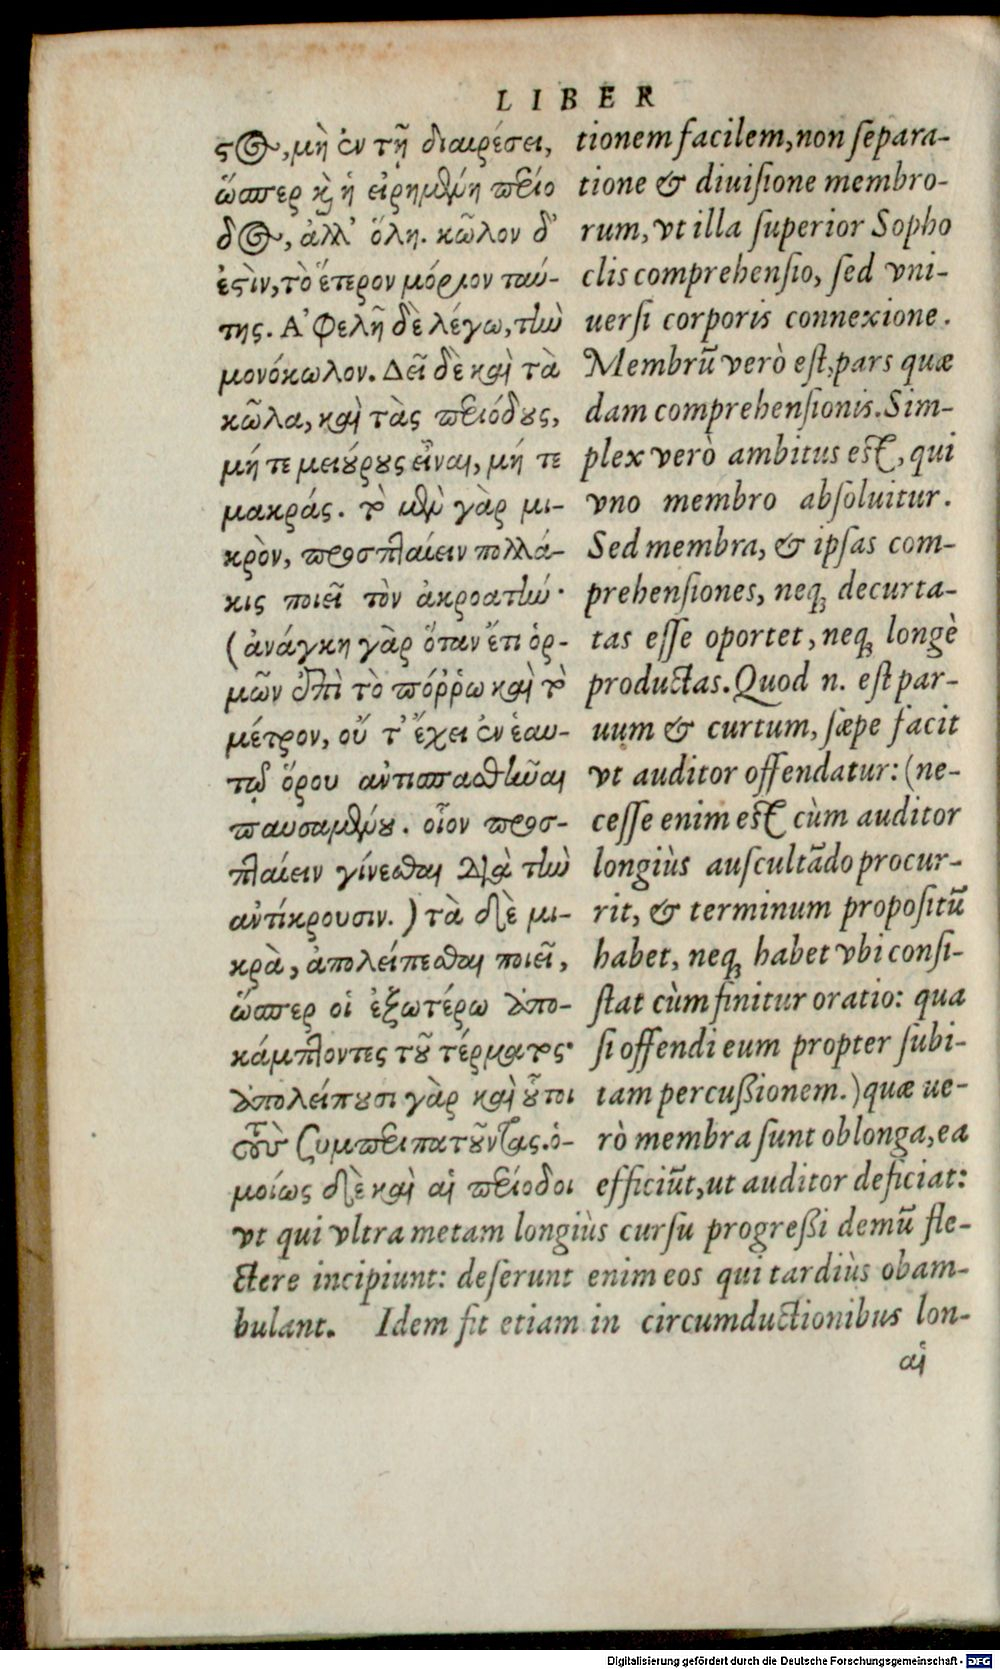 LIBER
στος, μὴ ἐν τῇ διαιρέσει,
ὥσπερ καὶ ἡ εἰρημένη περίο
δος, ἀλλ' ὅλη. κῶλον δ'
ἐστὶν, τὸ ἕτερον μόριον ταύ-
της. Ἀφελῆ δὲ λέγω, τὴν
μονόκωλον. Δεῖ δὲ καὶ τὰ
κῶλα, καὶ τὰς περιόδους,
μή τε μειούρους εἶναι, μή τε
μακράς. τὸ μὲν γὰρ μι-
κρὸν, προσπταίειν πολλά-
κις ποιεῖ τὸν ἀκροατήν·
(ἀνάγκη γὰρ ὅταν ἔτι ὁρ-
μῶν ἐπὶ τὸ πόῤῥω καὶ τὸ
μέτρον, οὗ τ' ἔχει ἐν ἑαυ-
τῷ ὅρον ἀντισπασθῆναι
παυσαμένου. οἷον προσ-
πταίειν γίνεσθαι διὰ τὴν
ἀντίκρουσιν.) τὰ δὲ μι-
κρὰ, ἀπολείπεσθαι ποιεῖ,
ὥσπερ οἱ ἐξωτέρω ἀπο-
κάμπτοντες τοῦ τέρματος·
ἀπολείπουσι γὰρ καὶ οὗτοι
τοὺς συμπεριπατοῦντας. ὁ-
μοίως δὲ καὶ αἱ περίοδοι
tionem facilem, non separa-
tione & diuisione membro-
rum, vt illa superior Sopho
clis comprehensio, sed vni-
uersi corporis connexione.
Membrũ verò est, pars quæ
dam comprehensionis. Sim-
plex verò ambitus est, qui
vno membro absoluitur.
Sed membra, & ipsas com-
prehensiones, neq; decurta-
tas esse oportet, neq; longè
productas. Quod n. est par-
uum & curtum, sæpe facit
vt auditor offendatur: (ne-
cesse enim est cùm auditor
longiùs auscultãdo procur-
rit, & terminum propositũ
habet, neq; habet vbi consi-
stat cùm finitur oratio: qua
si offendi eum propter subi-
tam percußionem.) quæ ue-
rò membra sunt oblonga, ea
efficiũt, ut auditor deficiat:
vt qui vltra metam longiùs cursu progreßi demũ fle-
ctere incipiunt: deserunt enim eos qui tardiùs obam-
bulant. Idem fit etiam in circumductionibus lon-
αἱ
Digitalisierung gefördert durch die Deutsche Forschungsgemeinschaft - DFG